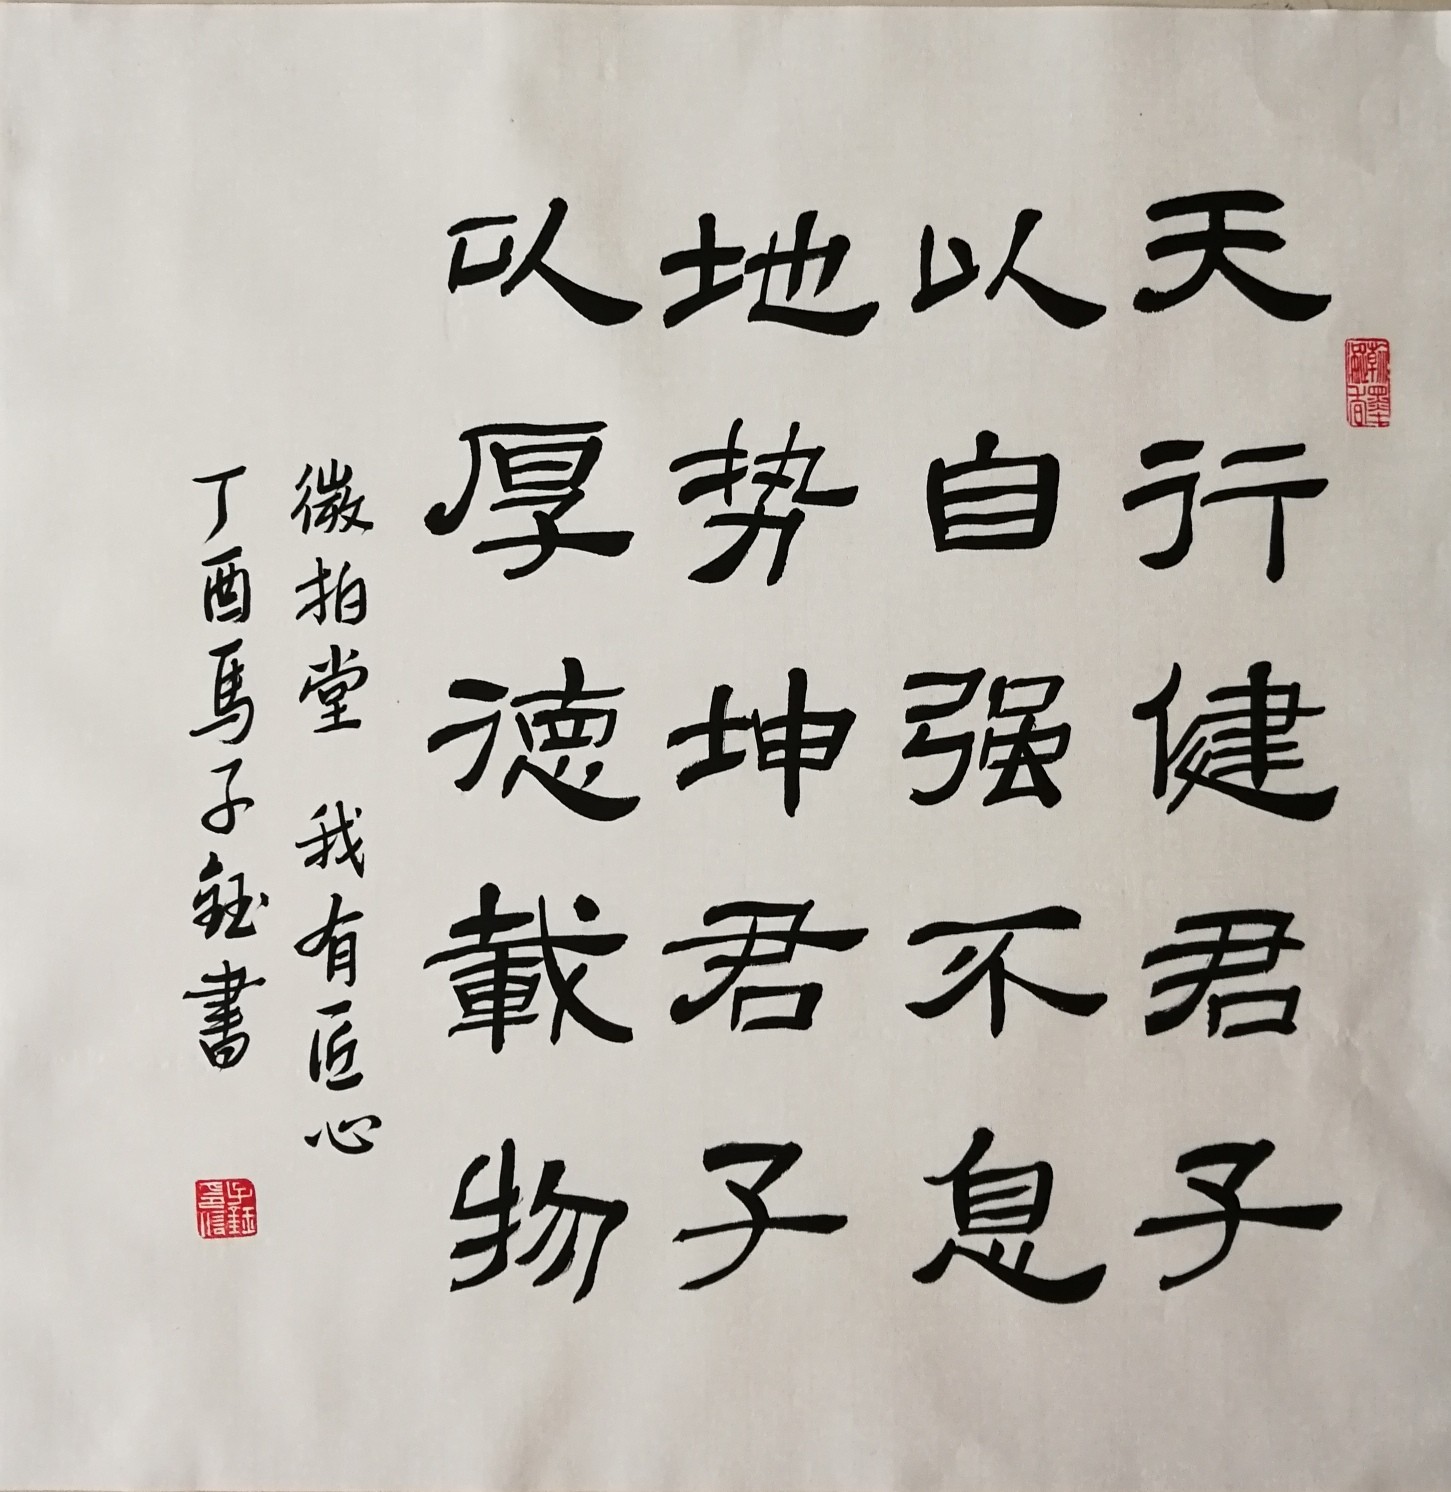 天行健君子
以自强不息
地势坤君子
以厚德載物
微拍堂 我有匠心
丁酉馬子鈺書